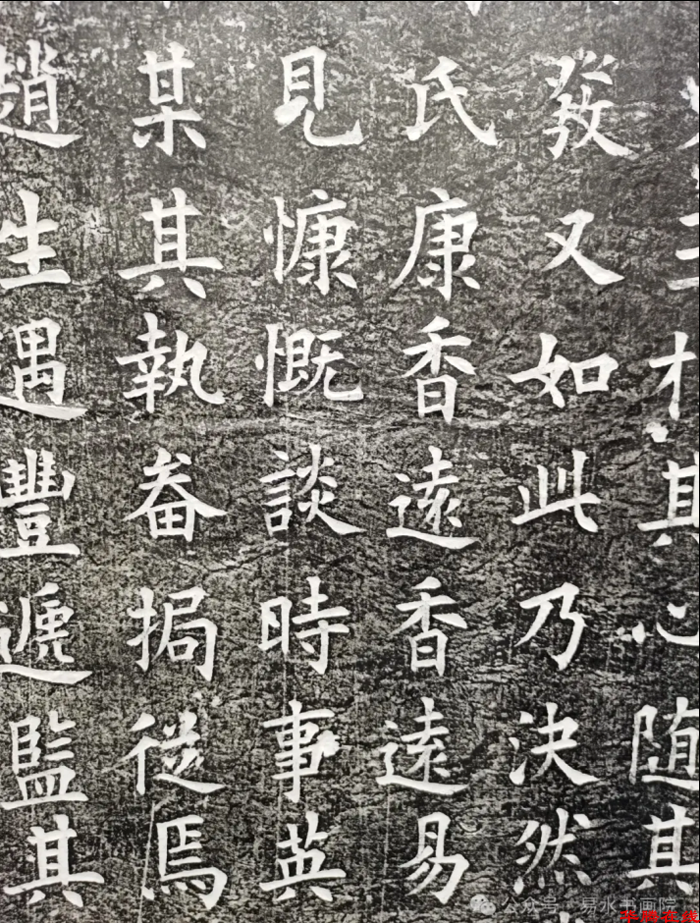 其心随其
發又如此乃決然
氏康香遠香遠易
見慷慨談時事英
某其執畚挶從焉
趙生遇豐遞監其
公众号 · 易水书画院